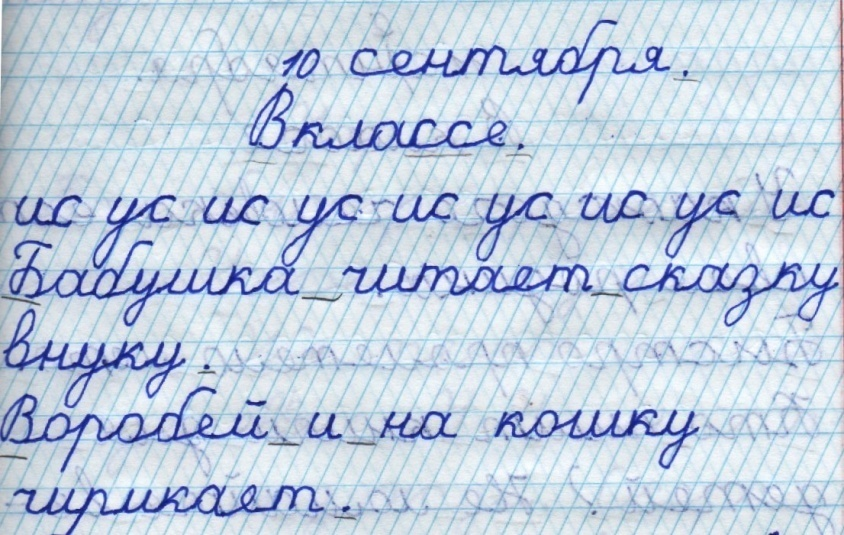 10 сентября.
В классе.
ис ус ис ус ис ус ис ус ис
Бабушка читает сказку
внуку.
Воробей и на кошку
чирикает.